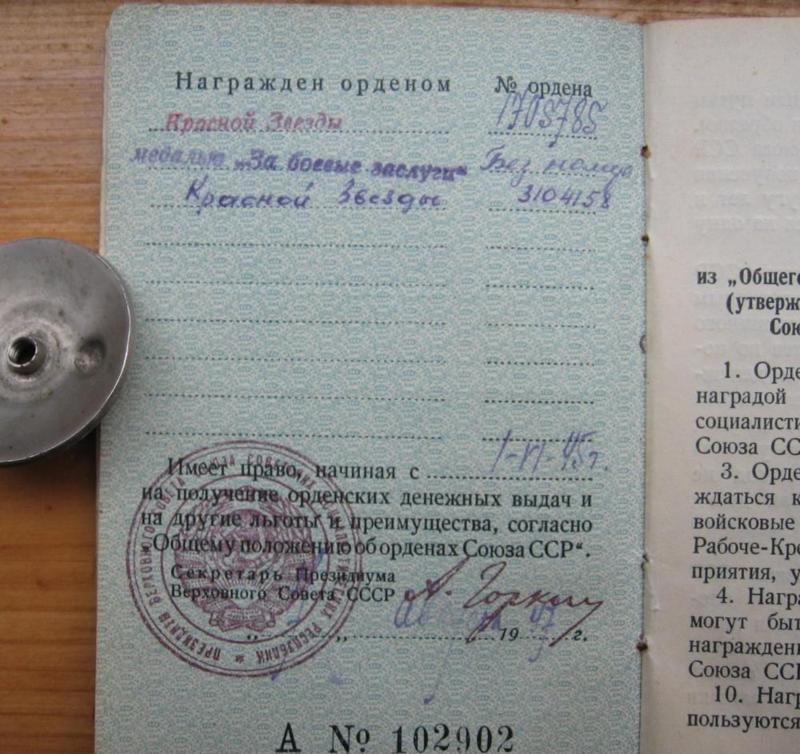 Награжден орденом № ордена
Красной Звезды 1705785
медалью „За боевые заслуги“ Без номера
Красной Звезды 3104158
Имеет право, начиная с 1-VI-45г.
на получение орденских денежных выдач и
на другие льготы и преимущества, согласно
„Общему положению об орденах Союза ССР“.
Секретарь Президиума
Верховного Совета СССР А. Горкин
„ „ 19 г.
А № 102902
ПРЕЗИДИУМ ВЕРХОВНОГО СОВЕТА СОЮЗА СОВЕТСКИХ СОЦИАЛИСТИЧЕСКИХ РЕСПУБЛИК
из „Общего
(утверж
Сою
1. Орде
наградой
социалисти
Союза СС
3. Орде
ждаться к
войсковые
Рабоче-Кре
приятия, у
4. Награ
могут быт
награждени
Союза ССР
10. Нагр
пользуются